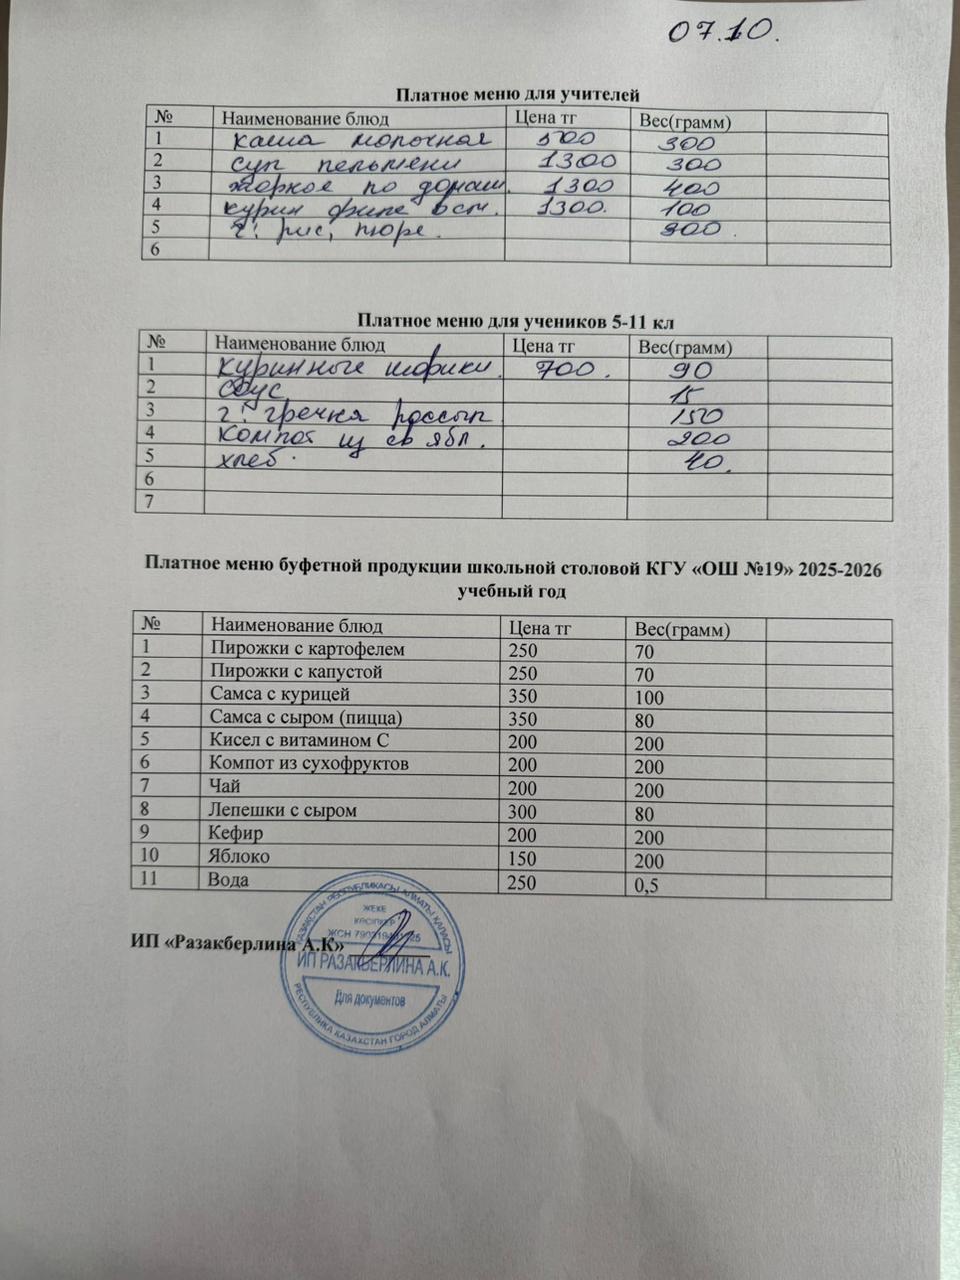 07.10.
Платное меню для учителей
№ Наименование блюд Цена тг Вес(грамм)
1 каша молочная 500 300
2 суп пельмени 1300 300
3 жаркое по домаш. 1300 400
4 курин филе в см. 1300. 100
5 г: рис, пюре. 300.
6
Платное меню для учеников 5-11 кл
№ Наименование блюд Цена тг Вес(грамм)
1 куринные шарики. 700. 90
2 соус 15
3 г: гречка рассып 150
4 компот из св ябл. 200
5 хлеб. 40.
6
7
Платное меню буфетной продукции школьной столовой КГУ «ОШ №19» 2025-2026
учебный год
№ Наименование блюд Цена тг Вес(грамм)
1 Пирожки с картофелем 250 70
2 Пирожки с капустой 250 70
3 Самса с курицей 350 100
4 Самса с сыром (пицца) 350 80
5 Кисел с витамином С 200 200
6 Компот из сухофруктов 200 200
7 Чай 200 200
8 Лепешки с сыром 300 80
9 Кефир 200 200
10 Яблоко 150 200
11 Вода 250 0,5
ИП «Разакберлина А.К»
ҚАЗАҚСТАН РЕСПУБЛИКАСЫ АЛМАТЫ ҚАЛАСЫ
ЖЕКЕ
КӘСІПКЕР
ЖСН
ИП РАЗАКБЕРЛИНА А.К.
Для документов
РЕСПУБЛИКА КАЗАХСТАН ГОРОД АЛМАТЫ